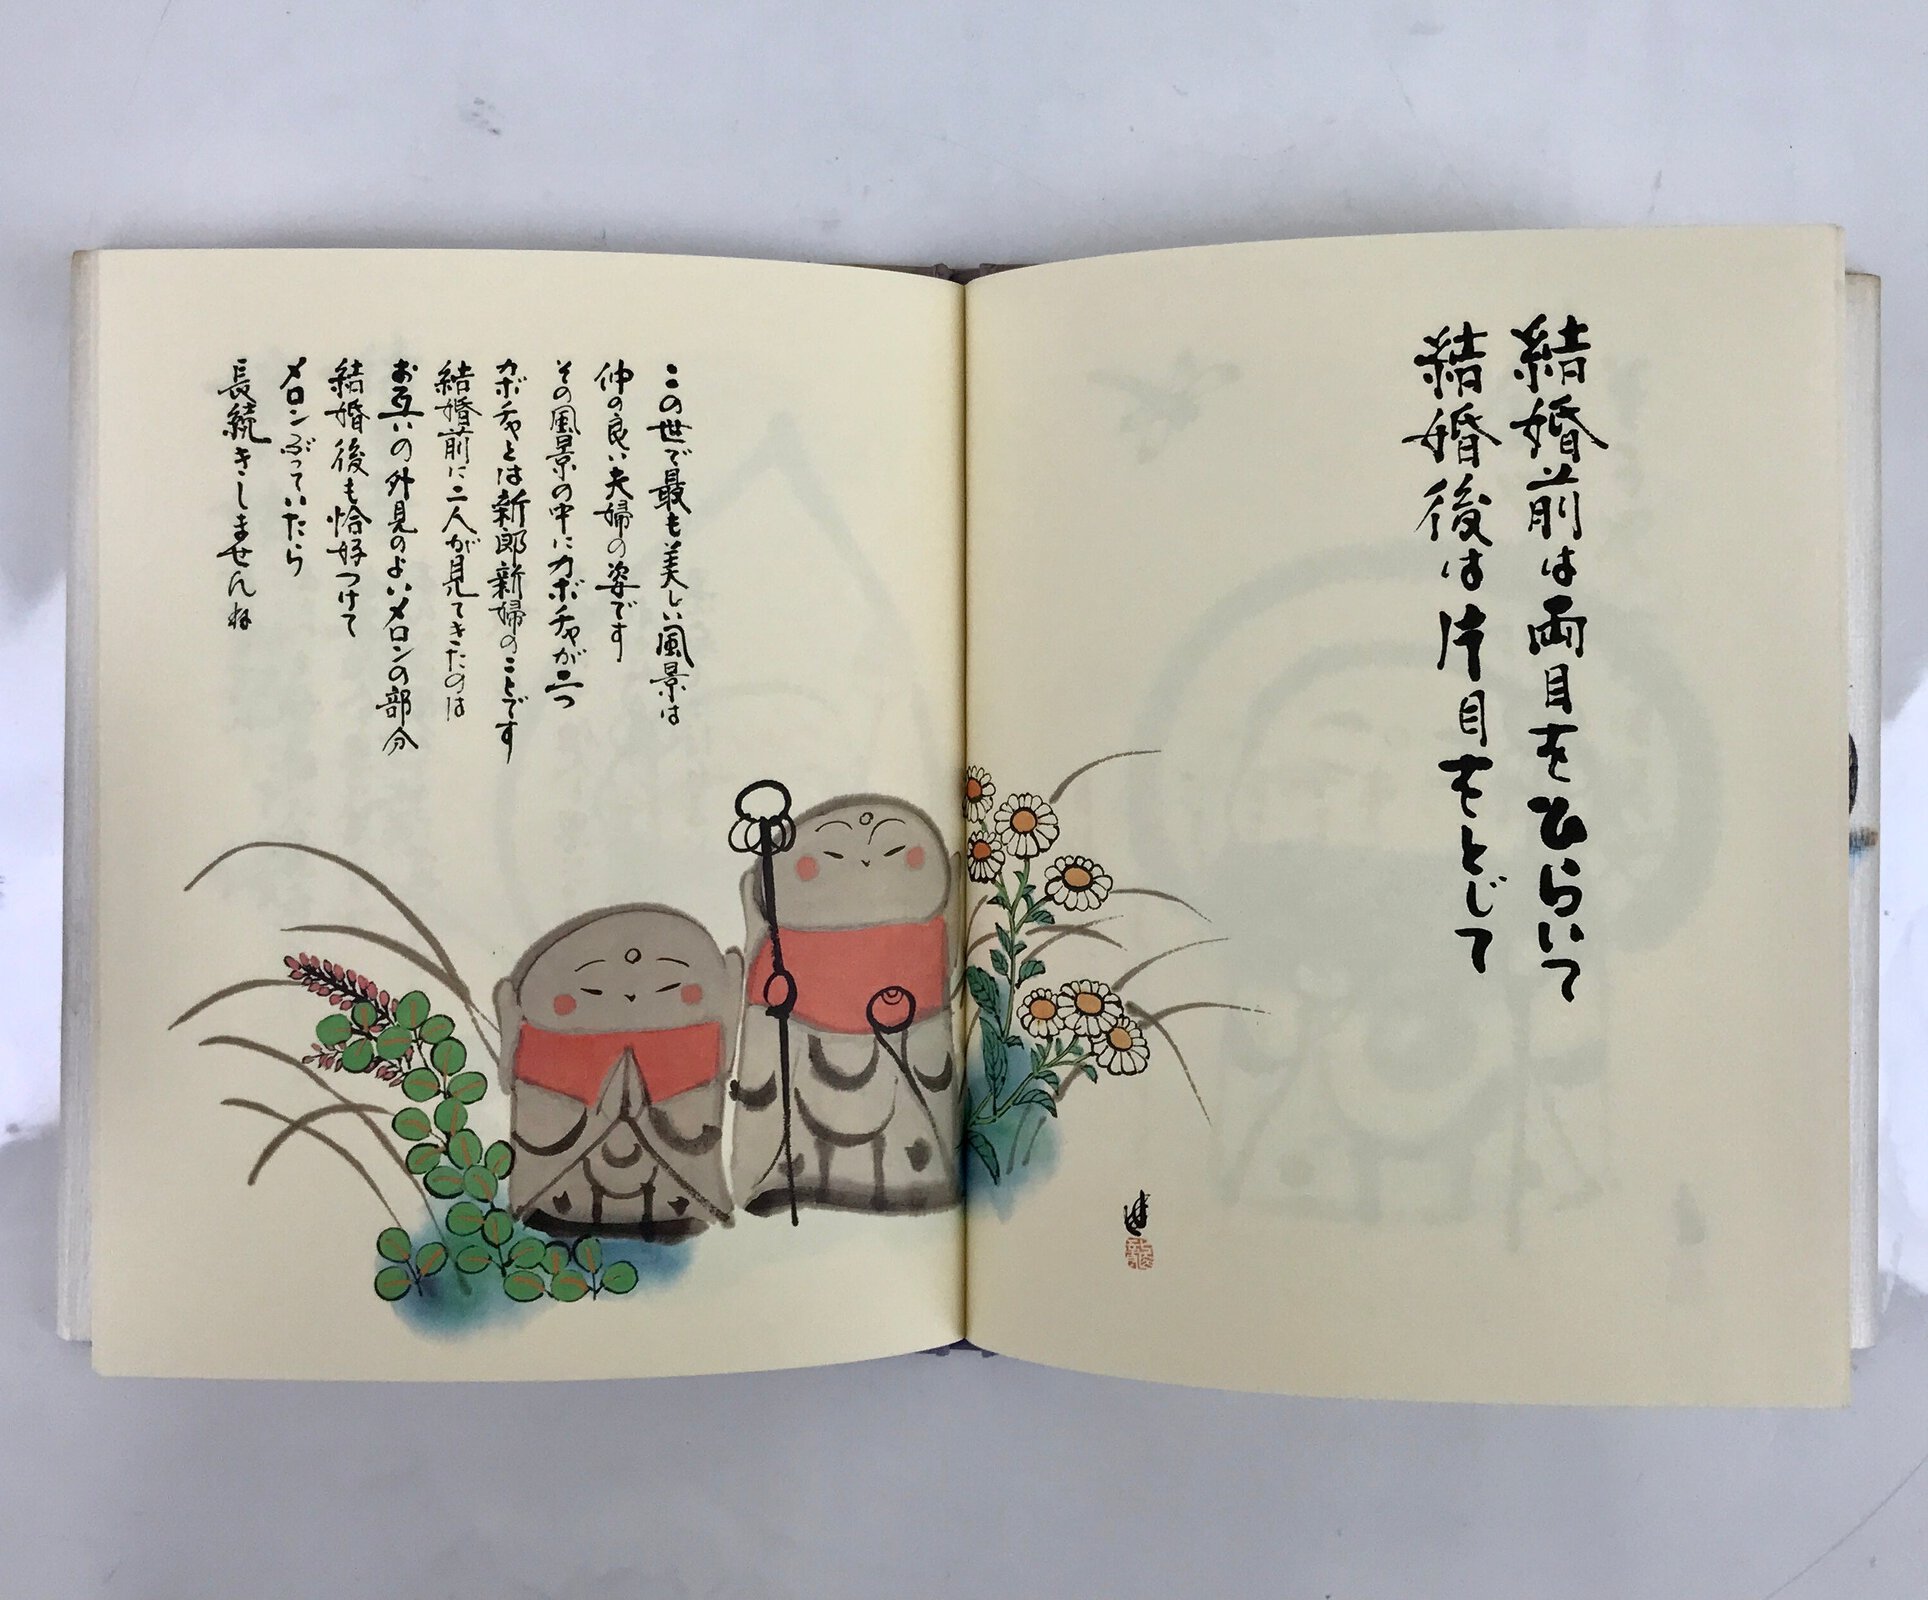 結婚前は両目をひらいて
結婚後は片目をとじて
この世で最も美しい風景は
仲の良い夫婦の姿です
その風景の中にカボチャが二つ
カボチャとは新郎新婦のことです
結婚前に二人が見てきたのは
お互いの外見のよいメロンの部分
結婚後も恰好つけて
メロンぶっていたら
長続きしませんね